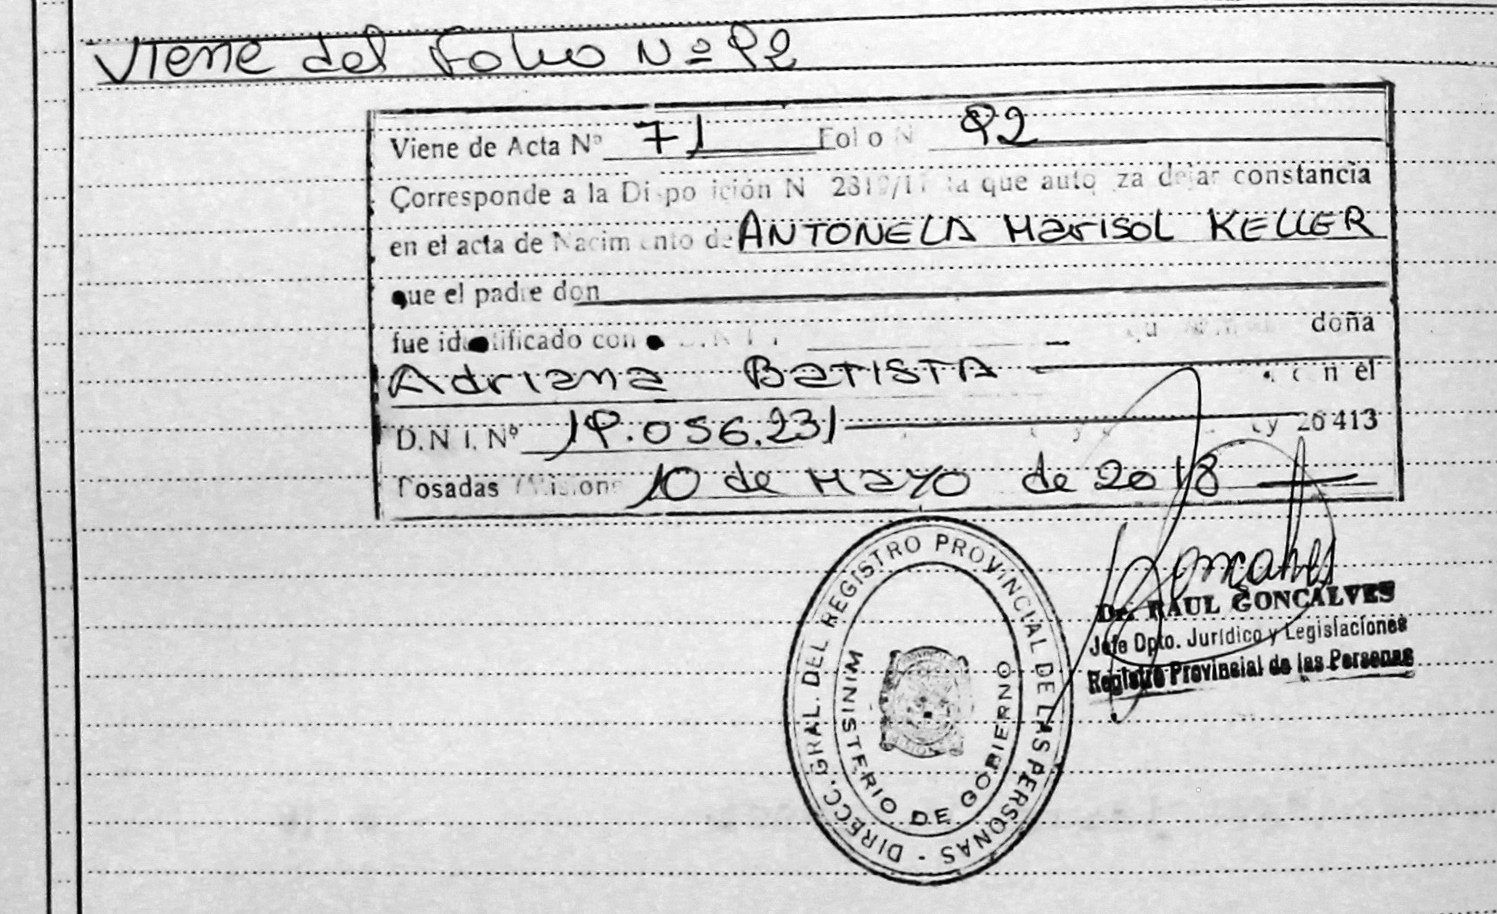 Viene del Folio Nº 92
Viene de Acta Nº 71 Folio N 92
Corresponde a la Disposición N 2819/11 la que autoriza dejar constancia
en el acta de Nacimiento de ANTONELA Marisol KELLER
que el padre don
fue identificado con D.N.I. doña
Adriana BATISTA con el
D.N.I. Nº 19.056.231 Ley 26413
Posadas (Misiones 10 de Mayo de 2018
Goncalves
Dr. RAUL GONCALVES
Jefe Dpto. Jurídico y Legislaciones
Registro Provincial de las Personas
DIRECC. GRAL. DEL REGISTRO PROVINCIAL DE LAS PERSONAS -
MINISTERIO DE GOBIERNO